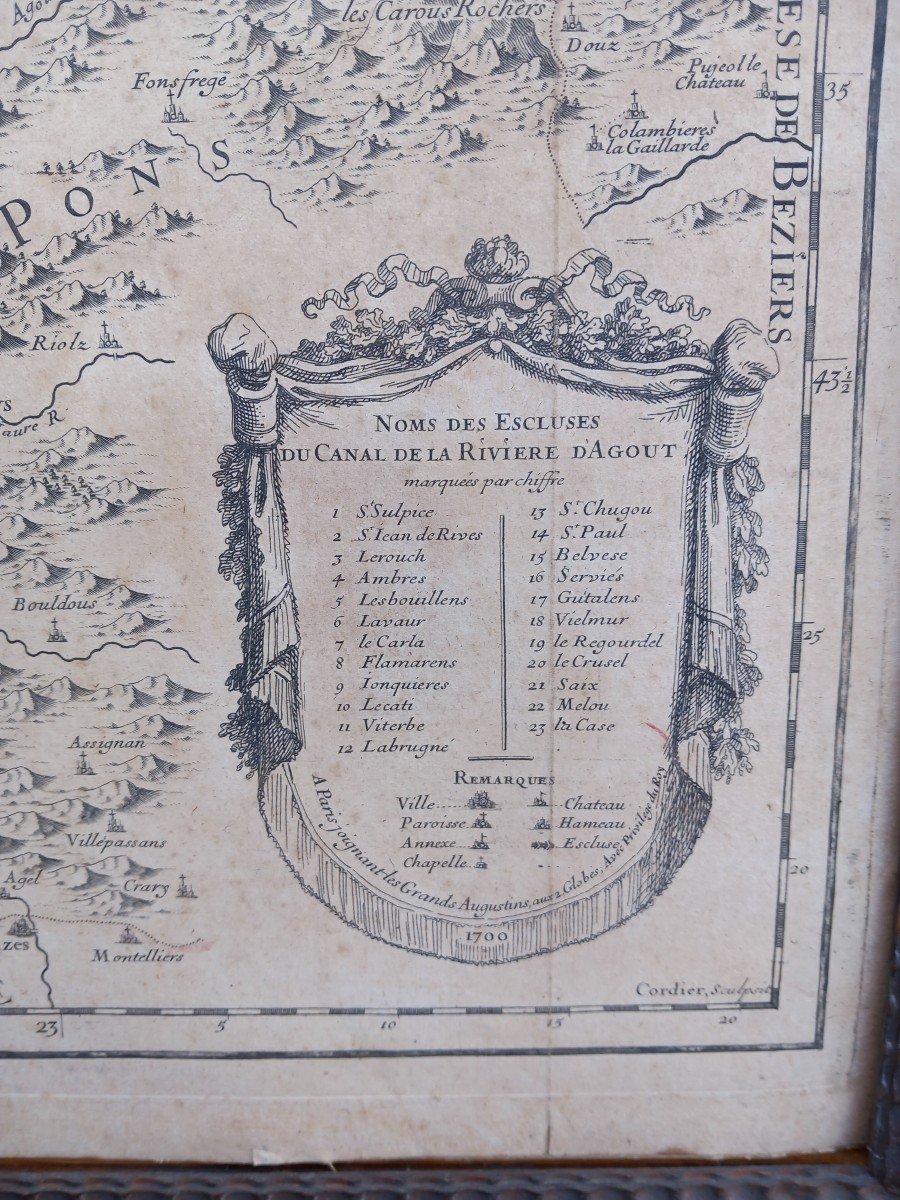 Agou
les Carous Rochers
Douz
Fonsfrege
Pujeol le
Chateau
35
Colambieres
la Gaillarde
PONS
ESE DE BEZIERS
Riolz
43 1/2
aure R.
Bouldous
25
Assignan
Villepassans
Agel
Crary
zes
Montelliers
20
NOMS DES ESCLUSES
DU CANAL DE LA RIVIERE D'AGOUT
marquées par chiffre
1 St Sulpice
2 St Iean de Rives
3 Lerouch
4 Ambres
5 Lesbouillens
6 Lavaur
7 le Carla
8 Flamarens
9 Ionquieres
10 Lecati
11 Viterbe
12 Labrugné
13 St Chugou
14 St Paul
15 Belvese
16 Serviés
17 Guitalens
18 Vielmur
19 le Regourdel
20 le Crusel
21 Saix
22 Melou
23 la Case
REMARQUES
Ville
Paroisse
Annexe
Chapelle
Chateau
Hameau
Escluse
A Paris joignant les Grands Augustins, aux 2 Globes, Avec Privilege du Roy
1700
Cordier, Sculpsit
23 5 10 15 20